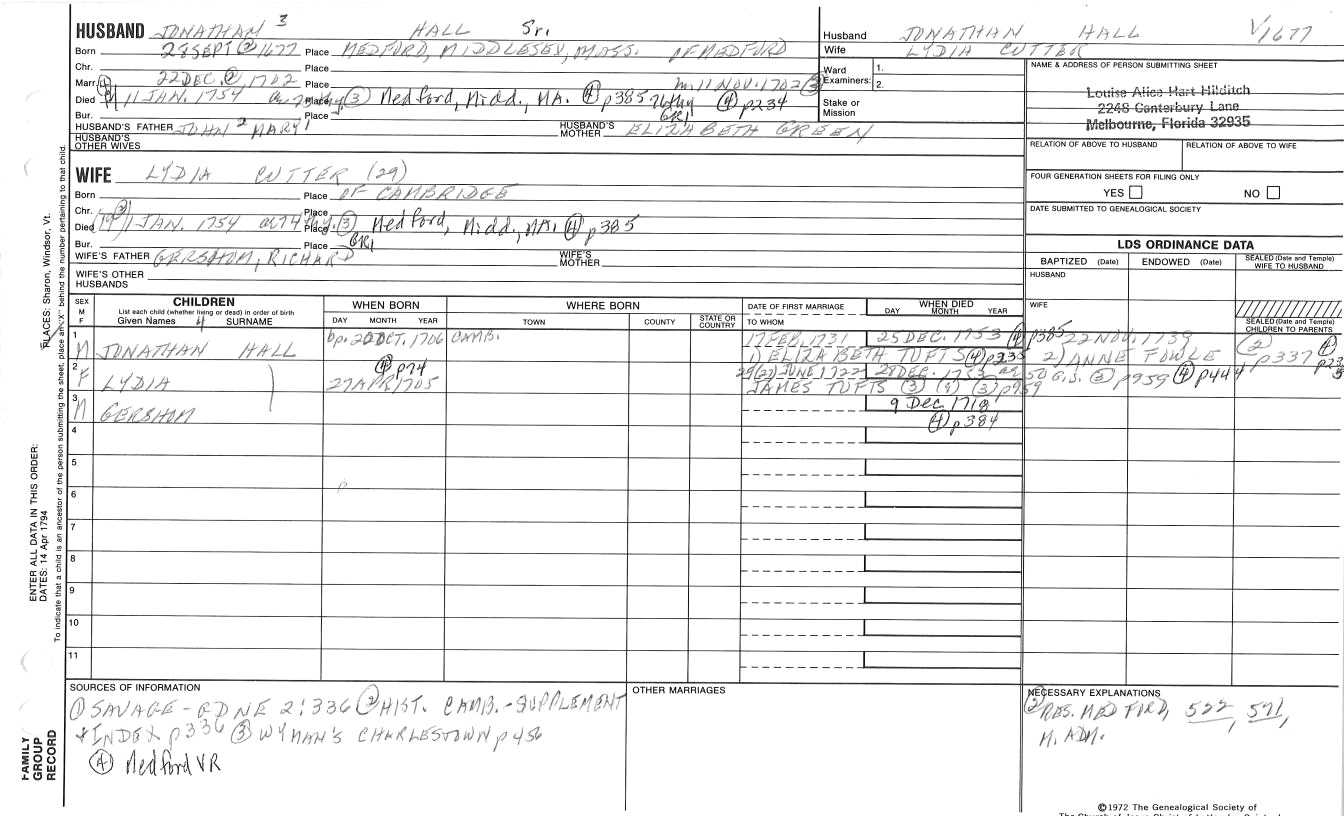 HUSBAND JONATHAN 3 HALL Sr.
Born 28 SEPT (2) 1677 Place MEDFORD, MIDDLESEX, MASS. OF MEDFORD
Chr. Place
Marr. 22 DEC. (2) 1702 Place m. 11 NOV. 1702 (3)
Died 11 JAN. 1754 Place (3) Medford, Midd., MA. (4) p385 GR1 (4) p234
Bur. Place
HUSBAND'S FATHER JOHN 2 MARY 1 HUSBAND'S MOTHER ELIZABETH GREEN
HUSBAND'S OTHER WIVES
WIFE LYDIA CUTTER (29)
Born Place OF CAMBRIDGE
Chr. Place
Died JAN. 1754 Place (3) Medford, Midd., MA. (4) p385
Bur. Place GR1
WIFE'S FATHER GERSHOM, RICHARD WIFE'S MOTHER
WIFE'S OTHER HUSBANDS
Husband JONATHAN HALL V1677
Wife LYDIA CUTTER
Ward Examiners: 1. 2.
Stake or Mission
NAME & ADDRESS OF PERSON SUBMITTING SHEET
Louise Alice Hart Hilditch
2248 Canterbury Lane
Melbourne, Florida 32935
RELATION OF ABOVE TO HUSBAND RELATION OF ABOVE TO WIFE
FOUR GENERATION SHEETS FOR FILING ONLY
YES NO
DATE SUBMITTED TO GENEALOGICAL SOCIETY
LDS ORDINANCE DATA
BAPTIZED (Date) ENDOWED (Date) SEALED (Date and Temple) WIFE TO HUSBAND
HUSBAND
WIFE
SEALED (Date and Temple) CHILDREN TO PARENTS
SEX M F
CHILDREN
List each child (whether living or dead) in order of birth
Given Names 4 SURNAME
WHEN BORN
DAY MONTH YEAR
WHERE BORN
TOWN COUNTY STATE OR COUNTRY
DATE OF FIRST MARRIAGE
TO WHOM
WHEN DIED
DAY MONTH YEAR
1 M JONATHAN HALL bp. 20 OCT. 1706 CAMB. 17 FEB. 1731 25 DEC. 1753 (4) p385 22 NOV. 1739 (2) p337 (4)
1) ELIZABETH TUFTS (4) p235 2) ANNE FOWLE
2 F LYDIA (4) p74 27 APR 1705 29 (27) JUNE 1722 DEC. 1753 50 G.S. (3) p959 (4) p444
JAMES TUFTS (3) (3) p959
3 M GERSHOM 9 Dec 1718
(4) p384
4
5
6
7
8
9
10
11
SOURCES OF INFORMATION
(1) SAVAGE - GDNE 2:336 (2) HIST. CAMB. - SUPPLEMENT
+ INDEX p336 (3) WYMAN'S CHARLESTOWN p456
(4) Medford VR
OTHER MARRIAGES
NECESSARY EXPLANATIONS
(2) RES. MEDFORD, 522, 571,
M. ADM.
©1972 The Genealogical Society of
PLACES: Sharon, Windsor, Vt.
To indicate that a child is an ancestor of the person submitting the sheet, place an "X" behind the number pertaining to that child.
ENTER ALL DATA IN THIS ORDER:
DATES: 14 Apr 1794
FAMILY GROUP RECORD